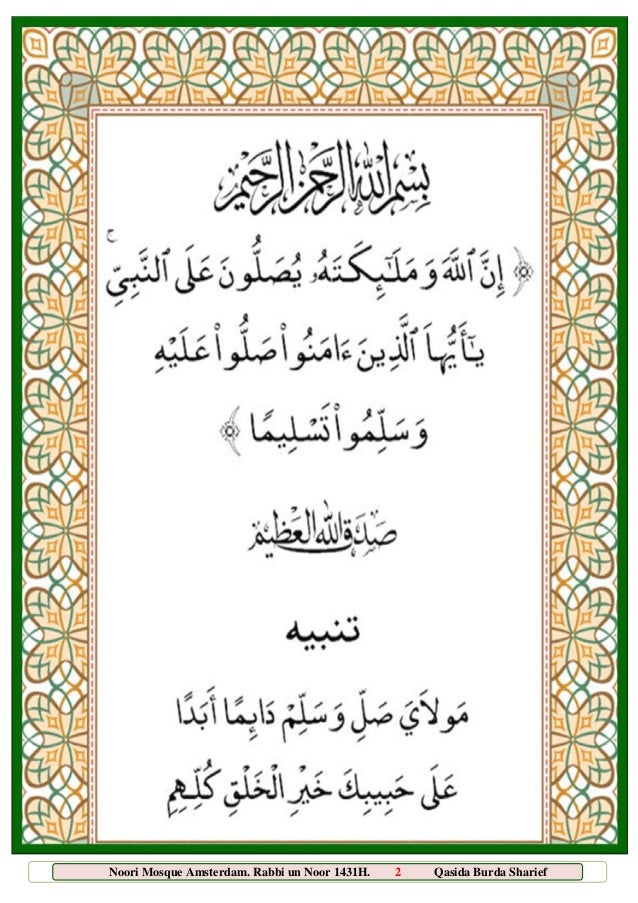 بِسْمِ اللهِ الرَّحْمٰنِ الرَّحِيْمِ
﴿ إِنَّ ٱللَّهَ وَ مَلَـٰٓئِكَـتَهُۥ يُصَلُّونَ عَلَى ٱلنَّبِىِّ ۚ
يَـٰٓأَيُّهاَ ٱلَّذِينَ ءَامَنُواْ صَلُّواْ عَلَيْهِ
وَ سَلِّمُواْ تَسْلِيمًا ﴾
صَدَقَ اللهُ الْعَظِيْم
تنبيه
مَولاَيَ صَلِّ وَ سَلِّمْ دَائِمًا أَبَدًا
عَلَى حَبِيبِكَ خَيْرِ الْخَلْقِ كُلِّـهِمِ
Noori Mosque Amsterdam. Rabbi un Noor 1431H. 2 Qasida Burda Sharief